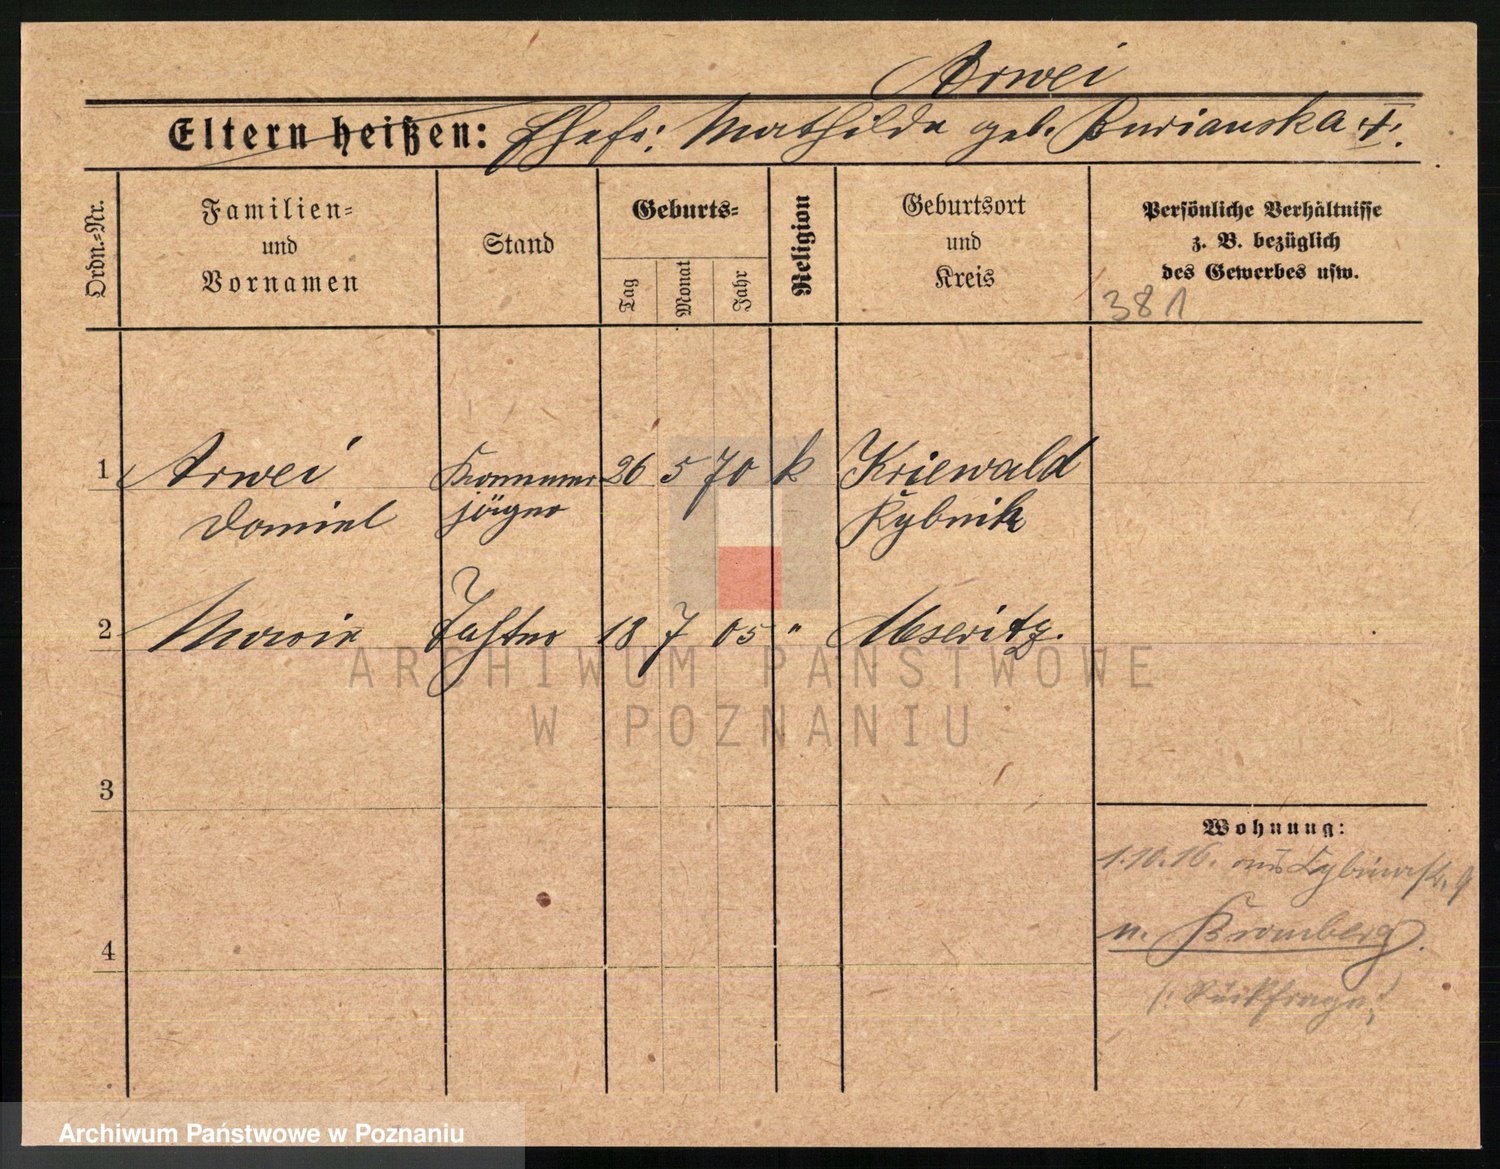 Arwei
Eltern heißen: Ehefr: Mathilde geb. Burianska †.
Ordn.-Nr.
Familien-
und
Vornamen
Stand
Geburts-
Tag
Monat
Jahr
Religion
Geburtsort
und
Kreis
Persönliche Verhältnisse
z. B. bezüglich
des Gewerbes usw.
381
1 Arwei Kammer 26 5 70 k Kriewald
Daniel jäger Rybnik
2 Maria Tochter 18 7 05 " Meseritz.
3
4
Wohnung:
1.10.16. aus
n. Bromberg.
(: Rückfrage :)
ARCHIWUM PAŃSTWOWE
W POZNANIU
Archiwum Państwowe w Poznaniu